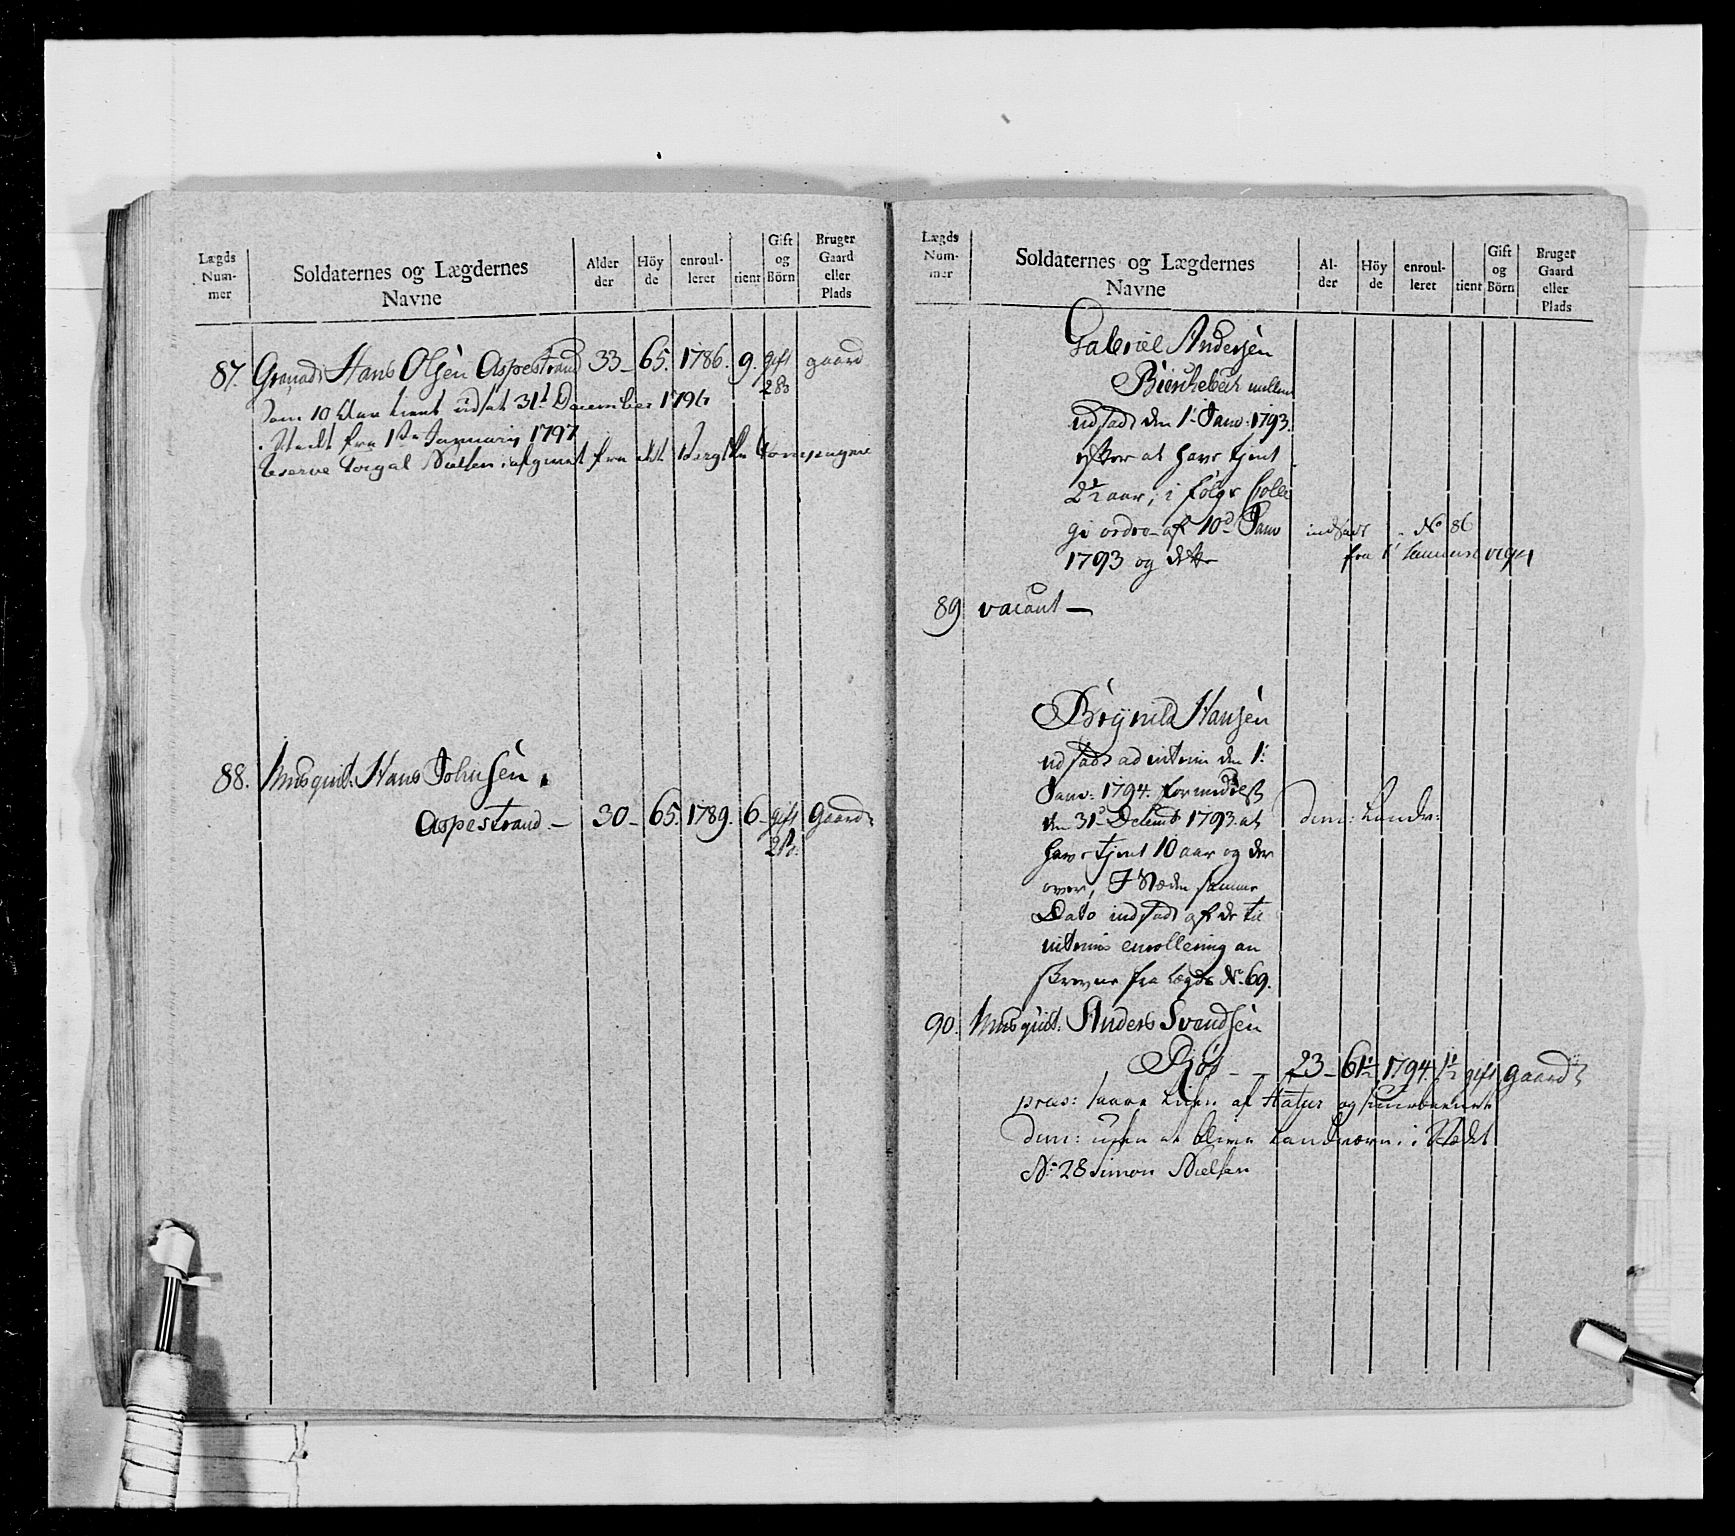 Lægds Num- mer
Soldaternes og Lægdernes Navne
Alder der
Höy de
enroul- leret
tient
Gift og Börn
Bruger Gaard eller Plads
87. Granad: Hans Olsen Aspestrand 33 - 65. 1786. 9. gift gaard
2 B
som 10 Aar tient ud at 31t December 1796
. Stedt fra 1te Januarij 1797
Reserve Torgal Nielsen afgivet fra det Bergske Compagnie
88. Musquet: Hans Johnsen
Aspestrand. - 30 - 65. 1789. 6 - gift Gaard
2 B.
Lægds Num- mer
Soldaternes og Lægdernes Navne
Al- der
Höy de
enroul- leret
tient
Gift og Börn
Bruger Gaard eller Plads
Gabriel Andersen
Bierchebech
udsadt den 1t Janv. 1793.
efter at have tjent
2½ aar, i følge Colle
gi ordre af 10d Janv indsadt No 86
1793 og dette fra 1t
89 vacant -
Brynild Hansen
udsadt ad interim den 1t
Janv. 1794. formedelst
den 31t Decemb 1793. at dim: Landv:
have tjent 10 aar og der
over, I Stæden samme
Dato indsadt af de til
interims enrollering an
skrevne fra Lægds No. 69.
90. Musquet: Anders Svendsen
Røs - - 23 - 61½ 1794. 1½ gift gaard
præs: af Statur og
dim: uden at blive Landværn, i Stædet
No 28 Simon Nielsen